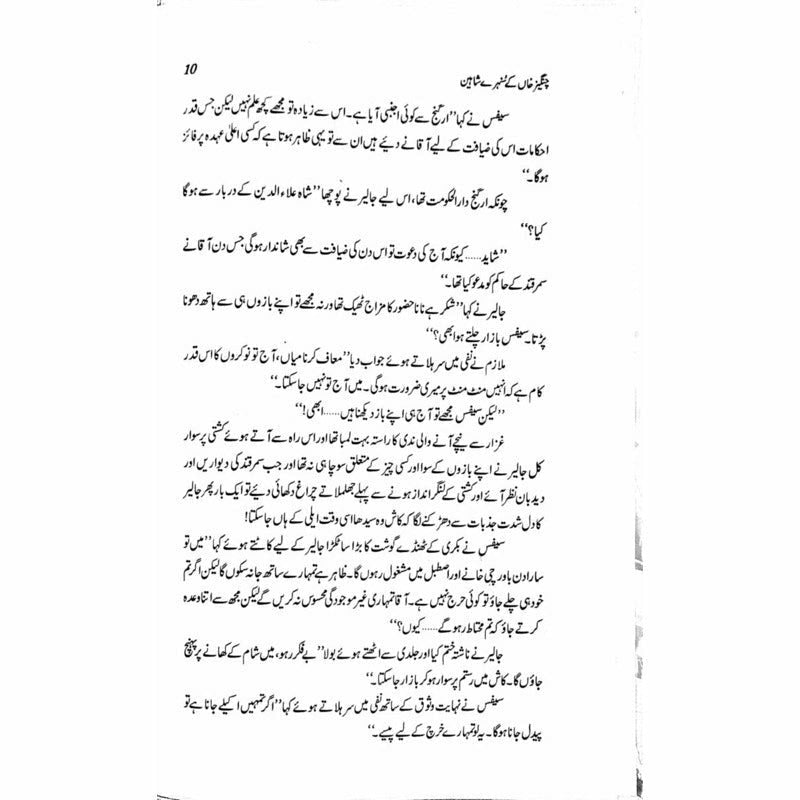 چنگیز خاں کے سُنہرے شاہین
10
سیفس نے کہا’’ارگنج سے کوئی اجنبی آیا ہے۔ اس سے زیادہ تو مجھے کچھ علم نہیں لیکن جس قدر
احکامات اس کی ضیافت کے لیے آقا نے دیئے ہیں ان سے تو یہی ظاہر ہوتا ہے کہ کسی اعلیٰ عہدہ پر فائز
ہوگا۔‘‘
چونکہ ارگنج دارالحکومت تھا، اس لیے جالیر نے پُوچھا ’’شاہ علاءالدین کے دربار سے ہوگا
کیا؟‘‘
’’شاید......کیونکہ آج کی دعوت تو اس دن کی ضیافت سے بھی شاندار ہوگی جس دن آقا نے
سمرقند کے حاکم کو مدعو کیا تھا۔‘‘
جالیر نے کہا’’شکر ہے نانا حضور کا مزاج ٹھیک تھا ورنہ مجھے تو اپنے بازوں ہی سے ہاتھ دھونا
پڑتا۔ سیفس بازار چلتے ہو ابھی؟‘‘
ملازم نے نفی میں سر ہلاتے ہوئے جواب دیا’’معاف کرنا میاں، آج تو نوکروں کا اس قدر
کام ہے کہ اُنہیں منٹ منٹ پر میری ضرورت ہوگی۔ میں آج تو نہیں جا سکتا۔‘‘
’’لیکن سیفس مجھے تو آج ہی اپنے باز دیکھنا ہیں......ابھی!‘‘
غزار سے نیچے آنے والی ندی کا راستہ بہت لمبا تھا اور اس راہ سے آتے ہوئے کشتی پر سوار
کل جالیر نے اپنے بازوں کے سوا اور کسی چیز کے متعلق سوچا ہی نہ تھا اور جب سمرقند کی دیواریں اور
دیدبان نظر آئے اور کشتی کے لنگر انداز ہونے سے پہلے جھلملاتے چراغ دکھائی دیئے تو ایک بار پھر جالیر
کا دل شدت جذبات سے دھڑکنے لگا کہ کاش وہ سیدھا اسی وقت ایلی کے ہاں جا سکتا!
سیفس نے بکری کے ٹھنڈے گوشت کا بڑا سا ٹکڑا جالیر کے لیے کاٹتے ہوئے کہا’’میں تو
سارا دن باورچی خانے اور اصطبل میں مشغول رہوں گا۔ ظاہر ہے تمہارے ساتھ جا نہ سکوں گا لیکن اگر تم
خود ہی چلے جاؤ تو کوئی حرج نہیں ہے۔ آقا تمہاری غیر موجودگی محسوس نہ کریں گے لیکن مجھ سے اتنا وعدہ
کرتے جاؤ کہ تم محتاط رہو گے......کیوں؟‘‘
جالیر نے ناشتہ ختم کیا اور جلدی سے اٹھتے ہوئے بولا’’بے فکر رہو، میں شام کے کھانے پر پہنچ
جاؤں گا۔ کاش میں رستم پر سوار ہو کر بازار جا سکتا۔‘‘
سیفس نے نہایت وثوق کے ساتھ نفی میں سر ہلاتے ہوئے کہا’’اگر تمہیں اکیلے جانا ہے تو
پیدل جانا ہوگا۔ یہ لو تمہارے خرچ کے لیے پیسے۔‘‘